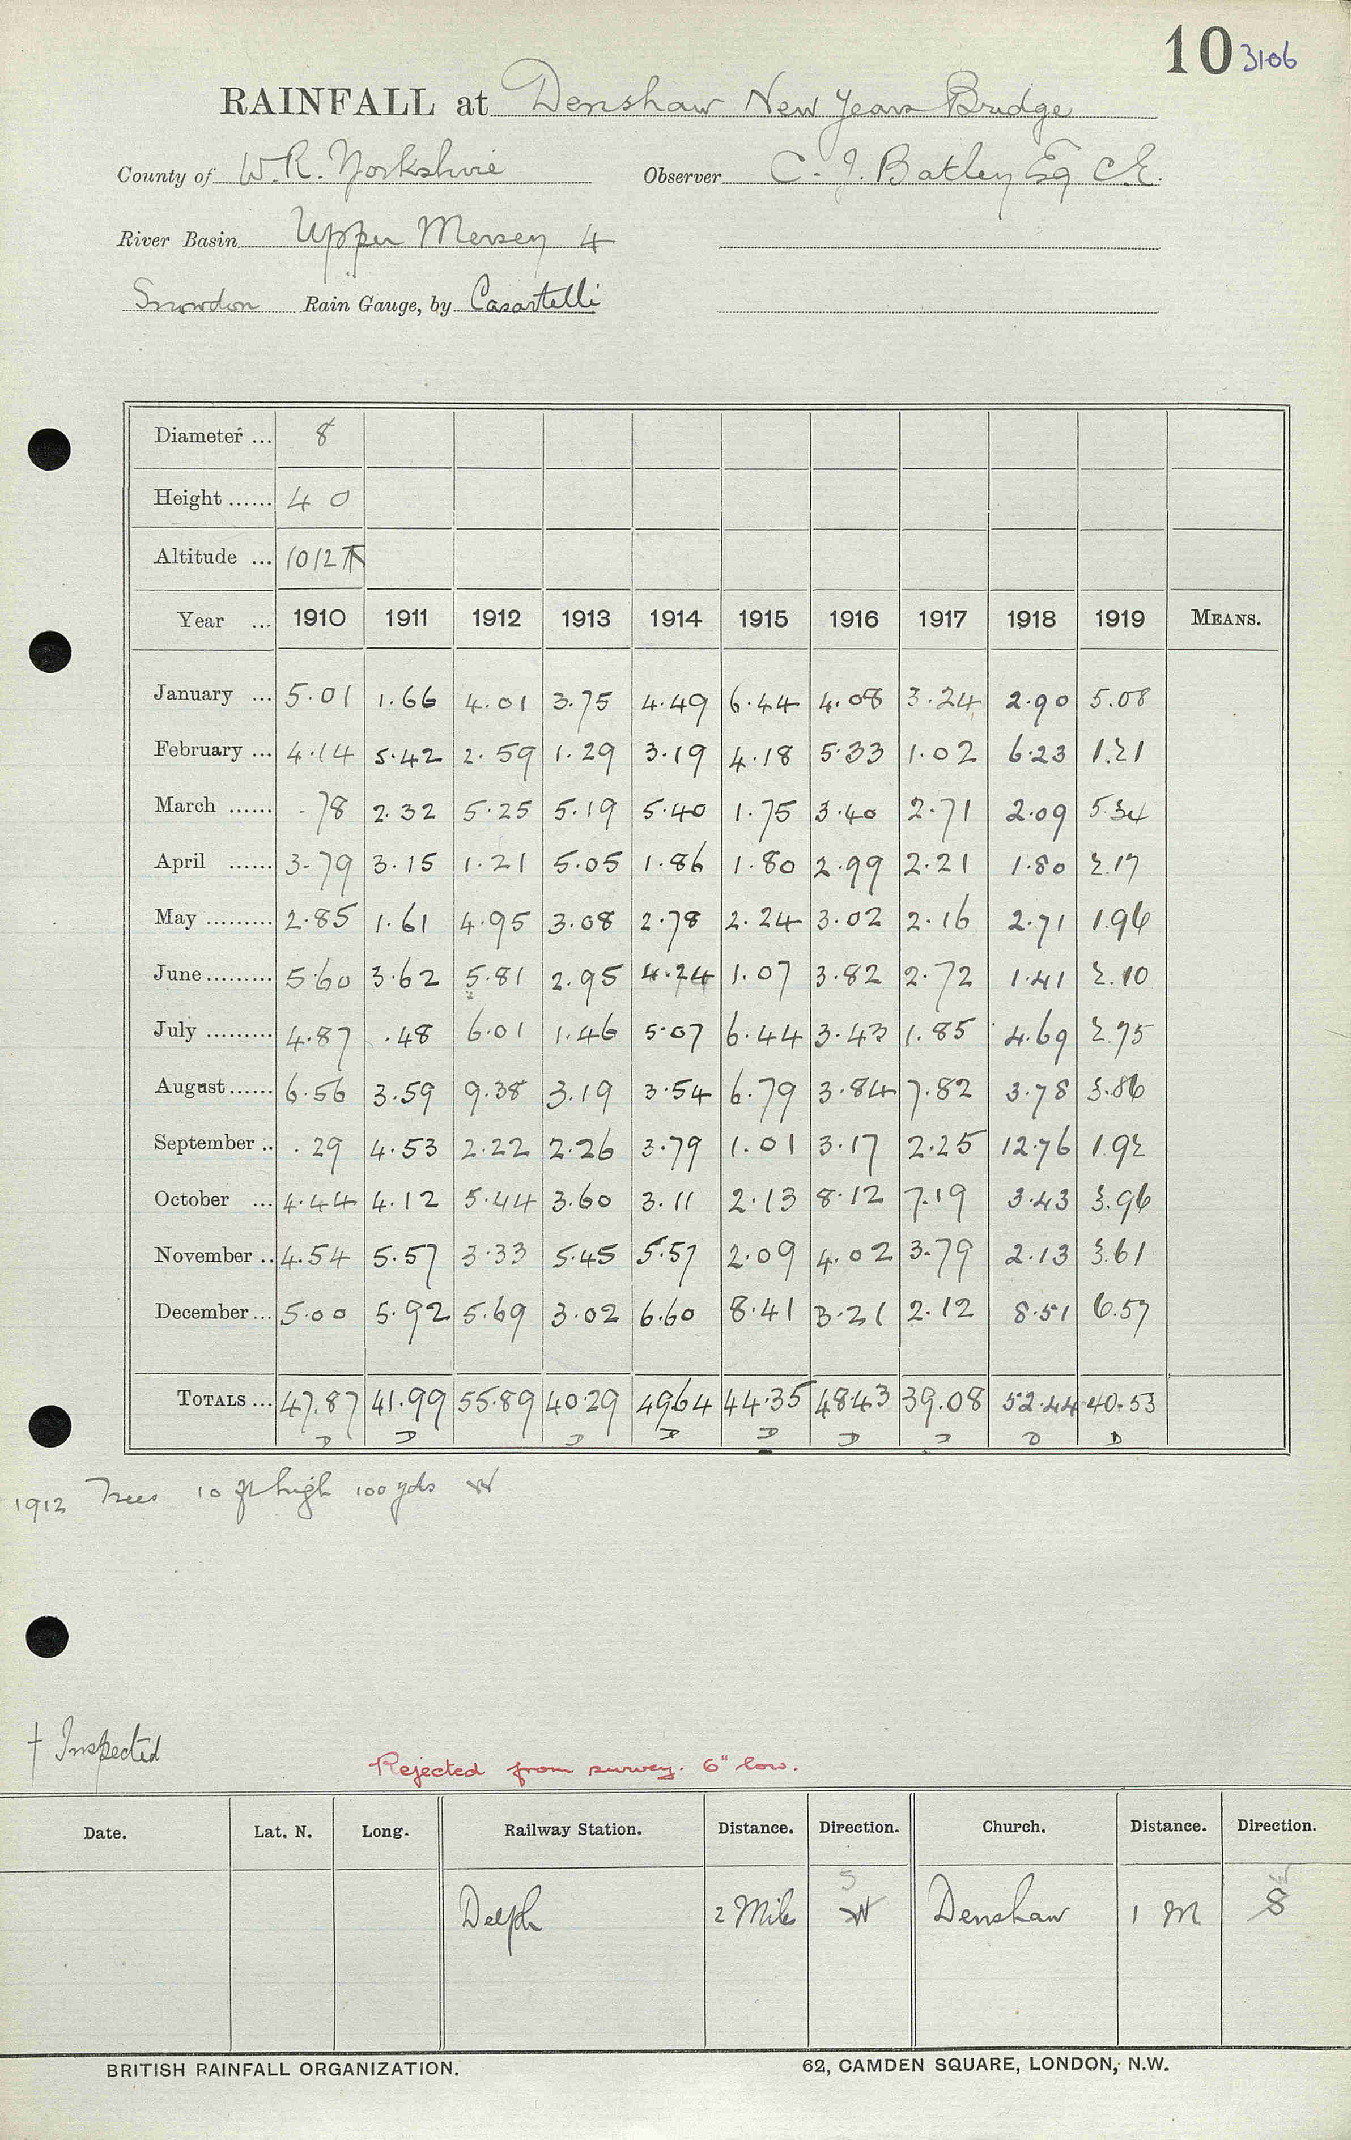 10 3106
RAINFALL at Denshaw New Years Bridge
County of W.R. Yorkshire Observer C. J. Batley Esq C.E.
River Basin Upper Mersey 4
Snowdon Rain Gauge, by Casartelli
Diameter ... 8
Height ...... 4 0
Altitude ... 1012
Year ... 1910 1911 1912 1913 1914 1915 1916 1917 1918 1919 MEANS.
January ... 5.01 1.66 4.01 3.75 4.49 6.44 4.08 3.24 2.90 5.08
February ... 4.14 5.42 2.59 1.29 3.19 4.18 5.33 1.02 6.23 1.21
March ...... .78 2.32 5.25 5.19 5.40 1.75 3.40 2.71 2.09 5.34
April ...... 3.79 3.15 1.21 5.05 1.86 1.80 2.99 2.21 1.80 2.17
May ......... 2.85 1.61 4.95 3.08 2.78 2.24 3.02 2.16 2.71 1.96
June ......... 5.60 3.62 5.81 2.95 4.24 1.07 3.82 2.72 1.41 2.10
July ......... 4.87 .48 6.01 1.46 5.07 6.44 3.43 1.85 4.69 2.75
August ...... 6.56 3.59 9.38 3.19 3.54 6.79 3.84 7.82 3.78 3.86
September .. .29 4.53 2.22 2.26 3.79 1.01 3.17 2.25 12.76 1.92
October ... 4.44 4.12 5.44 3.60 3.11 2.13 8.12 7.19 3.43 3.96
November .. 4.54 5.57 3.33 5.45 5.57 2.09 4.02 3.79 2.13 3.61
December ... 5.00 5.92 5.69 3.02 6.60 8.41 3.21 2.12 8.51 6.57
TOTALS ... 47.87 41.99 55.89 40.29 49.64 44.35 48.43 39.08 52.44 40.53
D D D D D D D D D
1912 Trees 10 ft high 100 yds W
† Inspected
Rejected from survey. 6" low.
Date. Lat. N. Long. Railway Station. Distance. Direction. Church. Distance. Direction.
Delph 2 Miles S Denshaw 1 M
BRITISH RAINFALL ORGANIZATION. 62, CAMDEN SQUARE, LONDON, N.W.